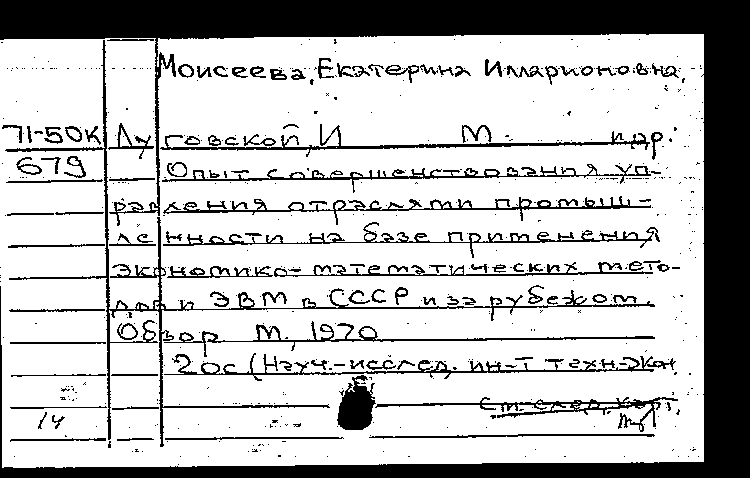 Моисеева, Екатерина Илларионовна,
71-50К Луговской, И М. и др.
679 Опыт совершенствования уп-
равления отраслями промыш-
ленности на базе применения
экономико-математических мето-
дов и ЭВМ в СССР и за рубежом.
Обзор М., 1970
20с (Науч.-исслед. ин-т техн-экон
См. след. карт.
14